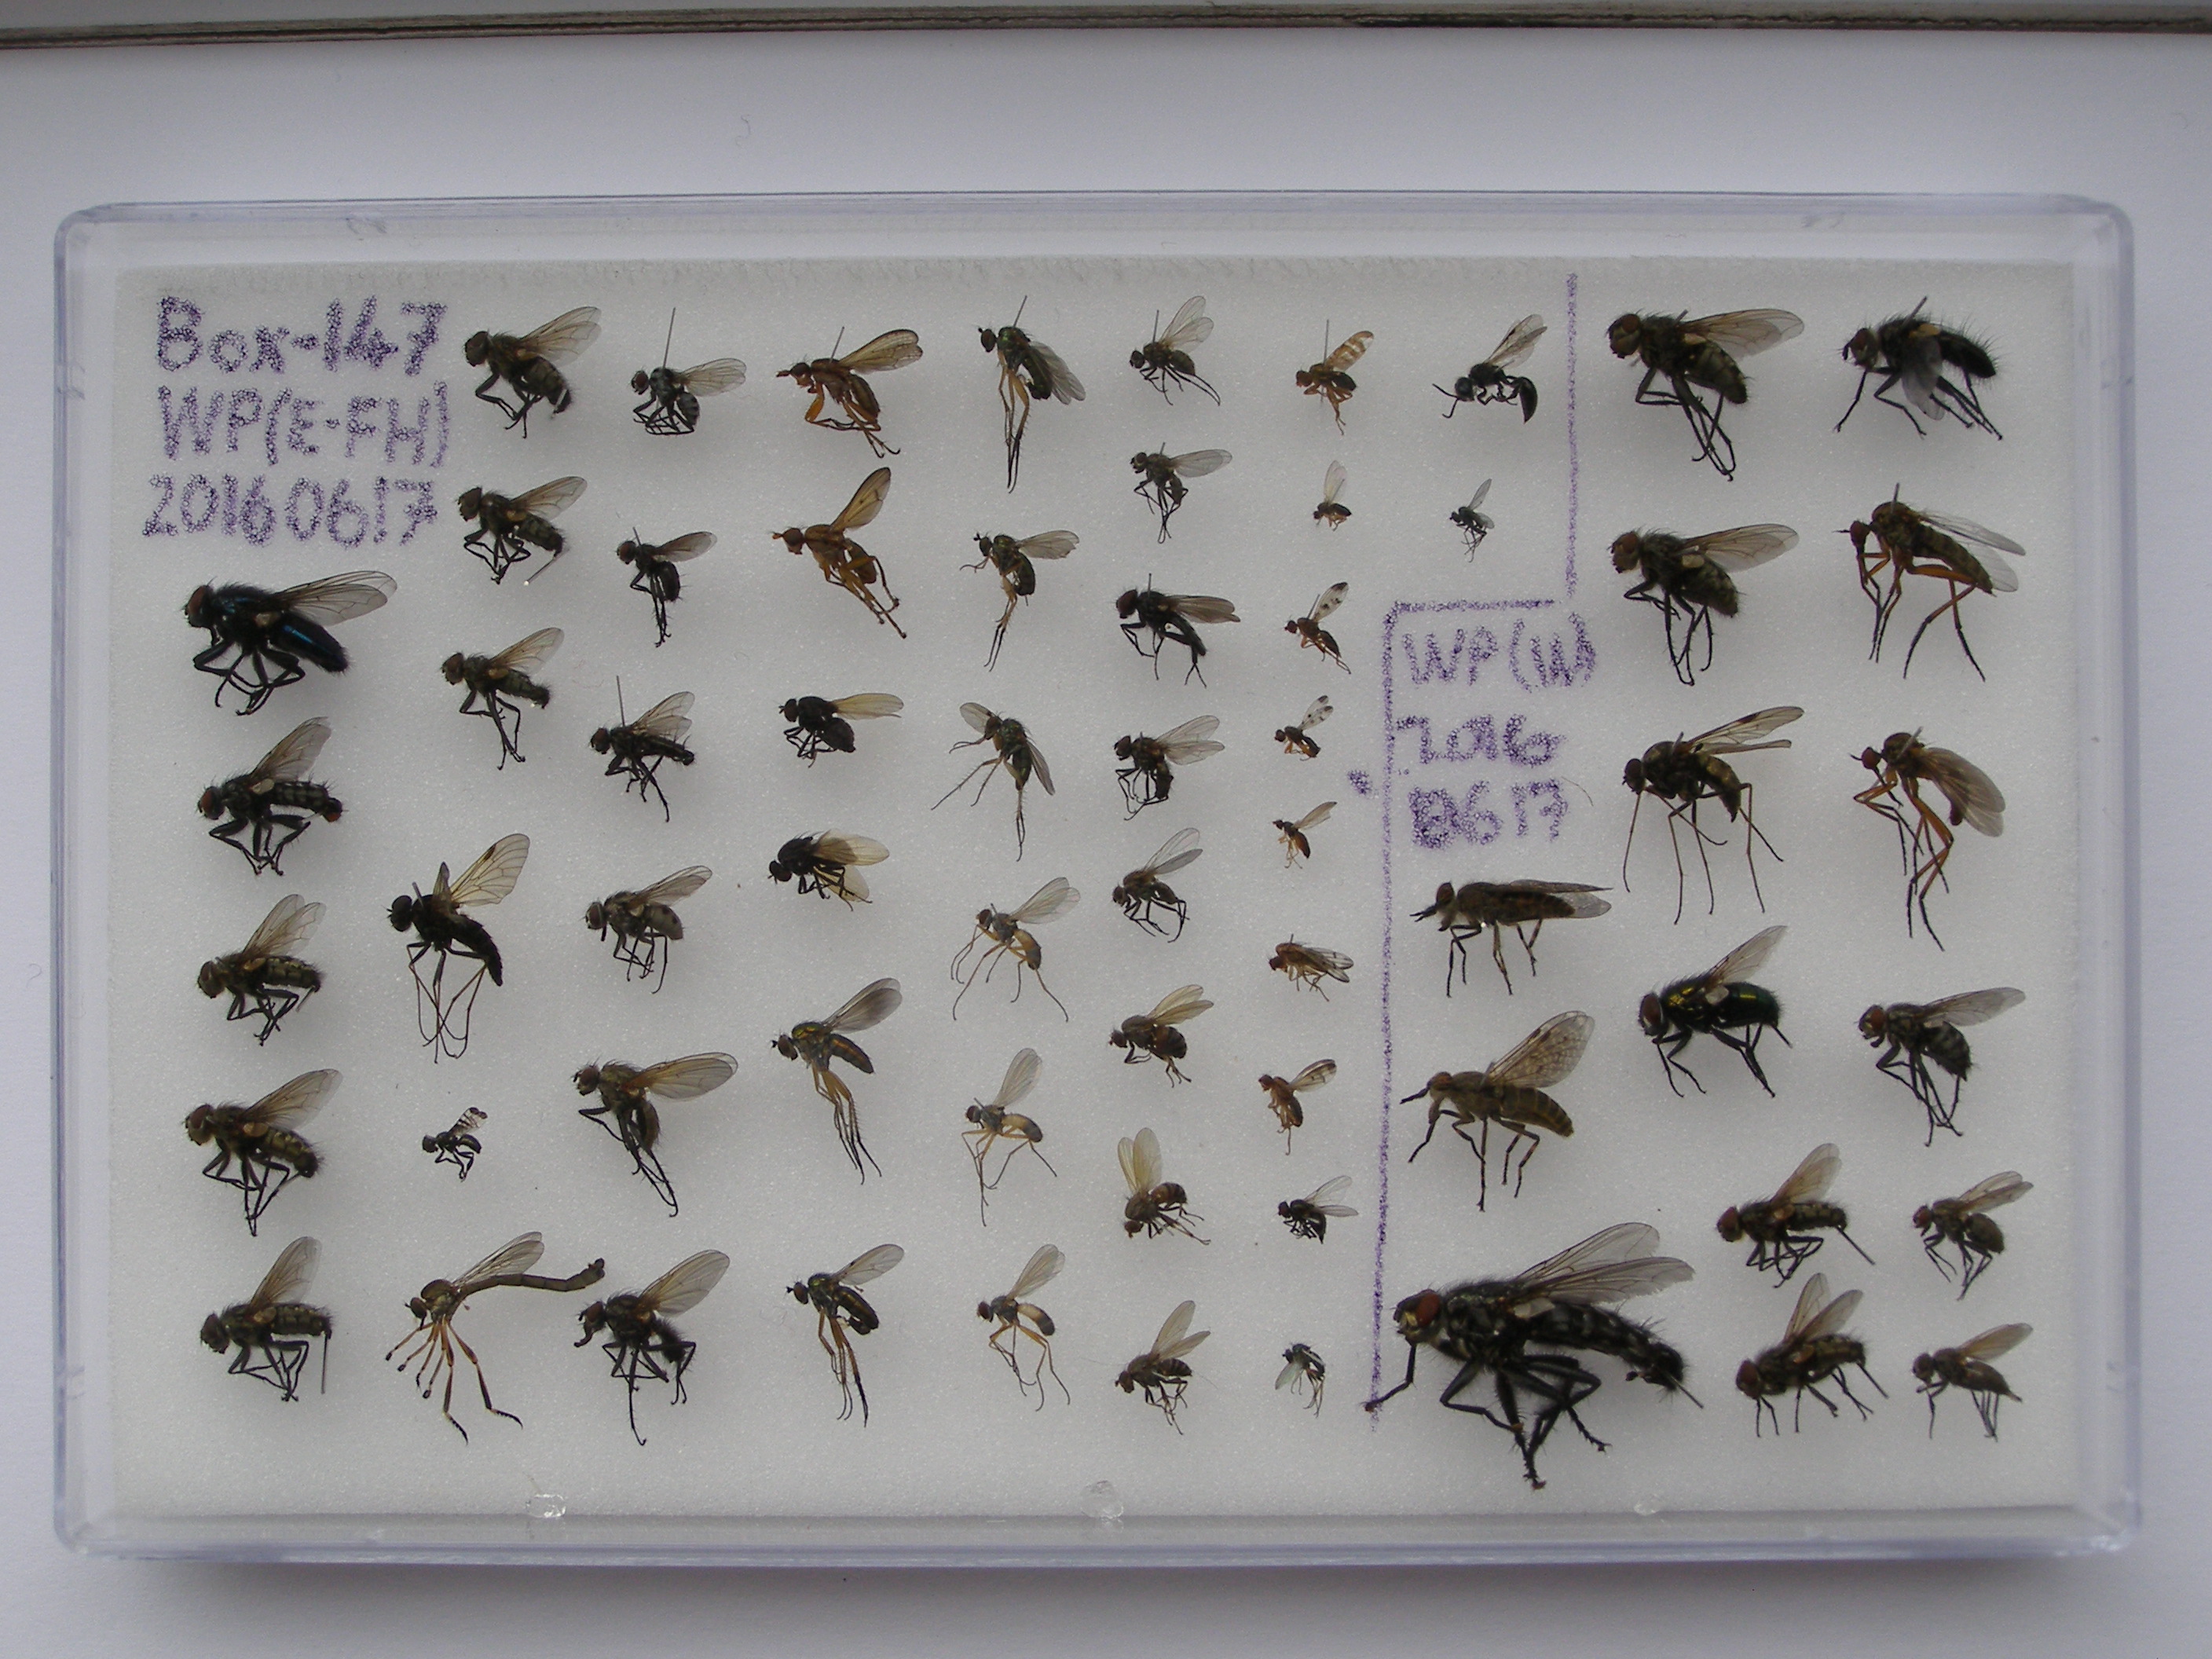 Box-147
WP(E-FH)
20160617
WP(W)
2016
0617